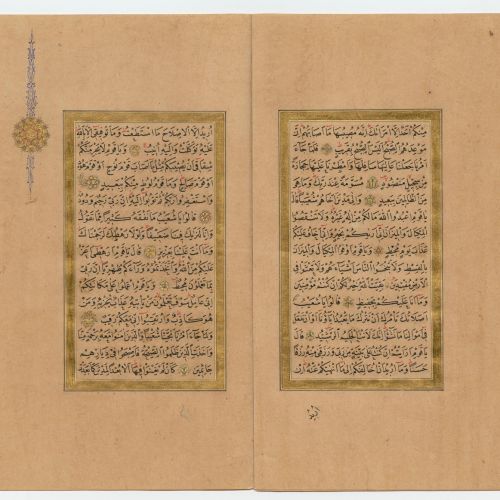 منكم احد الا امرأتك انه مصيبها ما اصابهم ان
موعدهم الصبح اليس الصبح بقريب فلما جاء
امرنا جعلنا عاليها سافلها وامطرنا عليها حجارة
من سجيل منضود مسومة عند ربك وما هي
من الظالمين ببعيد والى مدين اخاهم شعيبا قال
يا قوم اعبدوا الله ما لكم من اله غيره ولا تنقصوا
المكيال والميزان اني اريكم بخير واني اخاف عليكم
عذاب يوم محيط ويا قوم اوفوا المكيال والميزان
بالقسط ولا تبخسوا الناس اشياءهم ولا تعثوا في
الارض مفسدين بقيت الله خير لكم ان كنتم مؤمنين
وما انا عليكم بحفيظ قالوا يا شعيب
اصلوتك تأمرك ان نترك ما يعبد آباؤنا او ان نفعل
في اموالنا ما نشاء انك لانت الحليم الرشيد قال
يا قوم ارأيتم ان كنت على بينة من ربي ورزقني منه رزقا
حسنا وما اريد ان اخالفكم الى ما انهيكم عنه ان
اريد
اريد الا الاصلاح ما استطعت وما توفيقي الا بالله
عليه توكلت واليه انيب ويا قوم لا يجرمنكم
شقاقي ان يصيبكم مثل ما اصاب قوم نوح او قوم هود
او قوم صالح وما قوم لوط منكم ببعيد
واستغفروا ربكم ثم توبوا اليه ان ربي رحيم ودود
قالوا يا شعيب ما نفقه كثيرا مما تقول
وانا لنريك فينا ضعيفا ولولا رهطك لرجمناك
وما انت علينا بعزيز قال يا قوم ارهطي اعز
عليكم من الله واتخذتموه وراءكم ظهريا ان ربي
بما تعملون محيط ويا قوم اعملوا على مكانتكم
اني عامل سوف تعلمون من يأتيه عذاب يخزيه ومن
هو كاذب وارتقبوا اني معكم رقيب
ولما جاء امرنا نجينا شعيبا والذين آمنوا معه برحمة منا
واخذت الذين ظلموا الصيحة فاصبحوا في ديارهم
جاثمين كأن لم يغنوا فيها الا بعدا لمدين كما بعدت